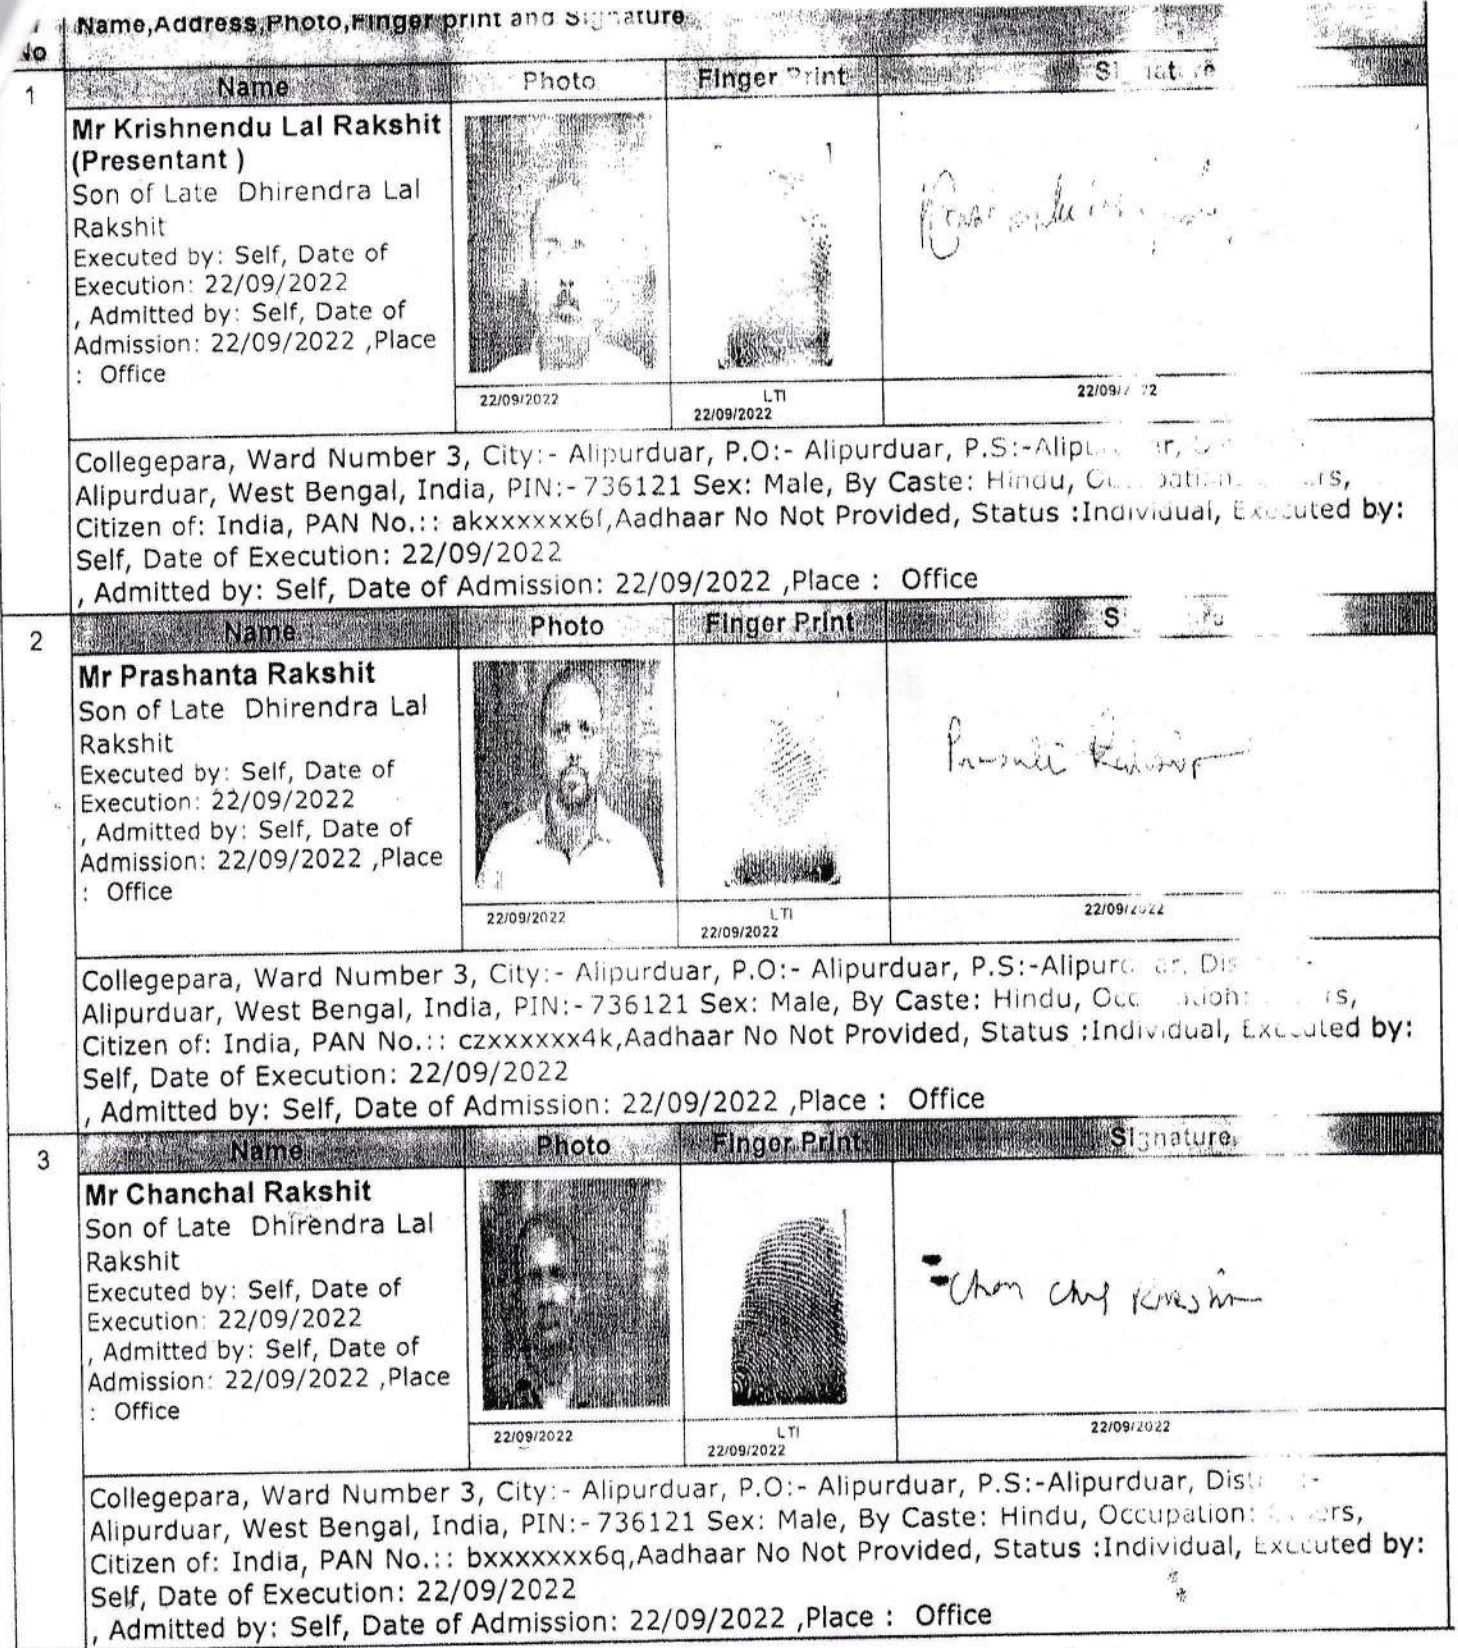 No
Name,Address,Photo,Finger print and Signature
Name Photo Finger Print Signature
1
Mr Krishnendu Lal Rakshit
(Presentant )
Son of Late Dhirendra Lal
Rakshit
Executed by: Self, Date of
Execution: 22/09/2022
, Admitted by: Self, Date of
Admission: 22/09/2022 ,Place
: Office
22/09/2022
LTI
22/09/2022
Collegepara, Ward Number 3, City:- Alipurduar, P.O:- Alipurduar, P.S:-
Alipurduar, West Bengal, India, PIN:- 736121 Sex: Male, By Caste: Hindu,
Citizen of: India, PAN No.:: akxxxxxx6f,Aadhaar No Not Provided, Status :Individual, Executed by:
Self, Date of Execution: 22/09/2022
, Admitted by: Self, Date of Admission: 22/09/2022 ,Place : Office
2
Name Photo Finger Print
Mr Prashanta Rakshit
Son of Late Dhirendra Lal
Rakshit
Executed by: Self, Date of
Execution: 22/09/2022
, Admitted by: Self, Date of
Admission: 22/09/2022 ,Place
: Office
22/09/2022
LTI
22/09/2022
22/09/2022
Collegepara, Ward Number 3, City:- Alipurduar, P.O:- Alipurduar, P.S:-
Alipurduar, West Bengal, India, PIN:- 736121 Sex: Male, By Caste: Hindu,
Citizen of: India, PAN No.:: czxxxxxx4k,Aadhaar No Not Provided, Status :Individual, Executed by:
Self, Date of Execution: 22/09/2022
, Admitted by: Self, Date of Admission: 22/09/2022 ,Place : Office
3
Name Photo Finger Print Signature
Mr Chanchal Rakshit
Son of Late Dhirendra Lal
Rakshit
Executed by: Self, Date of
Execution: 22/09/2022
, Admitted by: Self, Date of
Admission: 22/09/2022 ,Place
: Office
22/09/2022
LTI
22/09/2022
22/09/2022
Collegepara, Ward Number 3, City:- Alipurduar, P.O:- Alipurduar, P.S:-Alipurduar,
Alipurduar, West Bengal, India, PIN:- 736121 Sex: Male, By Caste: Hindu, Occupation:
Citizen of: India, PAN No.:: bxxxxxxx6q,Aadhaar No Not Provided, Status :Individual, Executed by:
Self, Date of Execution: 22/09/2022
, Admitted by: Self, Date of Admission: 22/09/2022 ,Place : Office